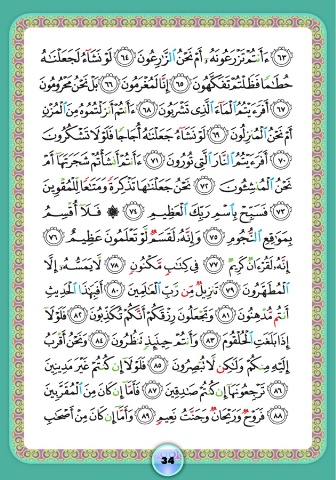 ﴿٦٣﴾ ءَأَنتُمْ تَزْرَعُونَهُۥٓ أَمْ نَحْنُ ٱلزَّٰرِعُونَ ﴿٦٤﴾ لَوْ نَشَآءُ لَجَعَلْنَٰهُ
حُطَٰمًا فَظَلْتُمْ تَفَكَّهُونَ ﴿٦٥﴾ إِنَّا لَمُغْرَمُونَ ﴿٦٦﴾ بَلْ نَحْنُ مَحْرُومُونَ
﴿٦٧﴾ أَفَرَءَيْتُمُ ٱلْمَآءَ ٱلَّذِى تَشْرَبُونَ ﴿٦٨﴾ ءَأَنتُمْ أَنزَلْتُمُوهُ مِنَ ٱلْمُزْنِ
أَمْ نَحْنُ ٱلْمُنزِلُونَ ﴿٦٩﴾ لَوْ نَشَآءُ جَعَلْنَٰهُ أُجَاجًا فَلَوْلَا تَشْكُرُونَ
﴿٧٠﴾ أَفَرَءَيْتُمُ ٱلنَّارَ ٱلَّتِى تُورُونَ ﴿٧١﴾ ءَأَنتُمْ أَنشَأْتُمْ شَجَرَتَهَآ أَمْ
نَحْنُ ٱلْمُنشِـُٔونَ ﴿٧٢﴾ نَحْنُ جَعَلْنَٰهَا تَذْكِرَةً وَمَتَٰعًا لِّلْمُقْوِينَ
﴿٧٣﴾ فَسَبِّحْ بِٱسْمِ رَبِّكَ ٱلْعَظِيمِ ﴿٧٤﴾ ۞ فَلَآ أُقْسِمُ
بِمَوَٰقِعِ ٱلنُّجُومِ ﴿٧٥﴾ وَإِنَّهُۥ لَقَسَمٌ لَّوْ تَعْلَمُونَ عَظِيمٌ ﴿٧٦﴾
إِنَّهُۥ لَقُرْءَانٌ كَرِيمٌ ﴿٧٧﴾ فِى كِتَٰبٍ مَّكْنُونٍ ﴿٧٨﴾ لَّا يَمَسُّهُۥٓ إِلَّا
ٱلْمُطَهَّرُونَ ﴿٧٩﴾ تَنزِيلٌ مِّن رَّبِّ ٱلْعَٰلَمِينَ ﴿٨٠﴾ أَفَبِهَٰذَا ٱلْحَدِيثِ
أَنتُم مُّدْهِنُونَ ﴿٨١﴾ وَتَجْعَلُونَ رِزْقَكُمْ أَنَّكُمْ تُكَذِّبُونَ ﴿٨٢﴾ فَلَوْلَآ
إِذَا بَلَغَتِ ٱلْحُلْقُومَ ﴿٨٣﴾ وَأَنتُمْ حِينَئِذٍ تَنظُرُونَ ﴿٨٤﴾ وَنَحْنُ أَقْرَبُ
إِلَيْهِ مِنكُمْ وَلَٰكِن لَّا تُبْصِرُونَ ﴿٨٥﴾ فَلَوْلَآ إِن كُنتُمْ غَيْرَ مَدِينِينَ
﴿٨٦﴾ تَرْجِعُونَهَآ إِن كُنتُمْ صَٰدِقِينَ ﴿٨٧﴾ فَأَمَّآ إِن كَانَ مِنَ ٱلْمُقَرَّبِينَ
﴿٨٨﴾ فَرَوْحٌ وَرَيْحَانٌ وَجَنَّتُ نَعِيمٍ ﴿٨٩﴾ وَأَمَّآ إِن كَانَ مِنْ أَصْحَٰبِ
34